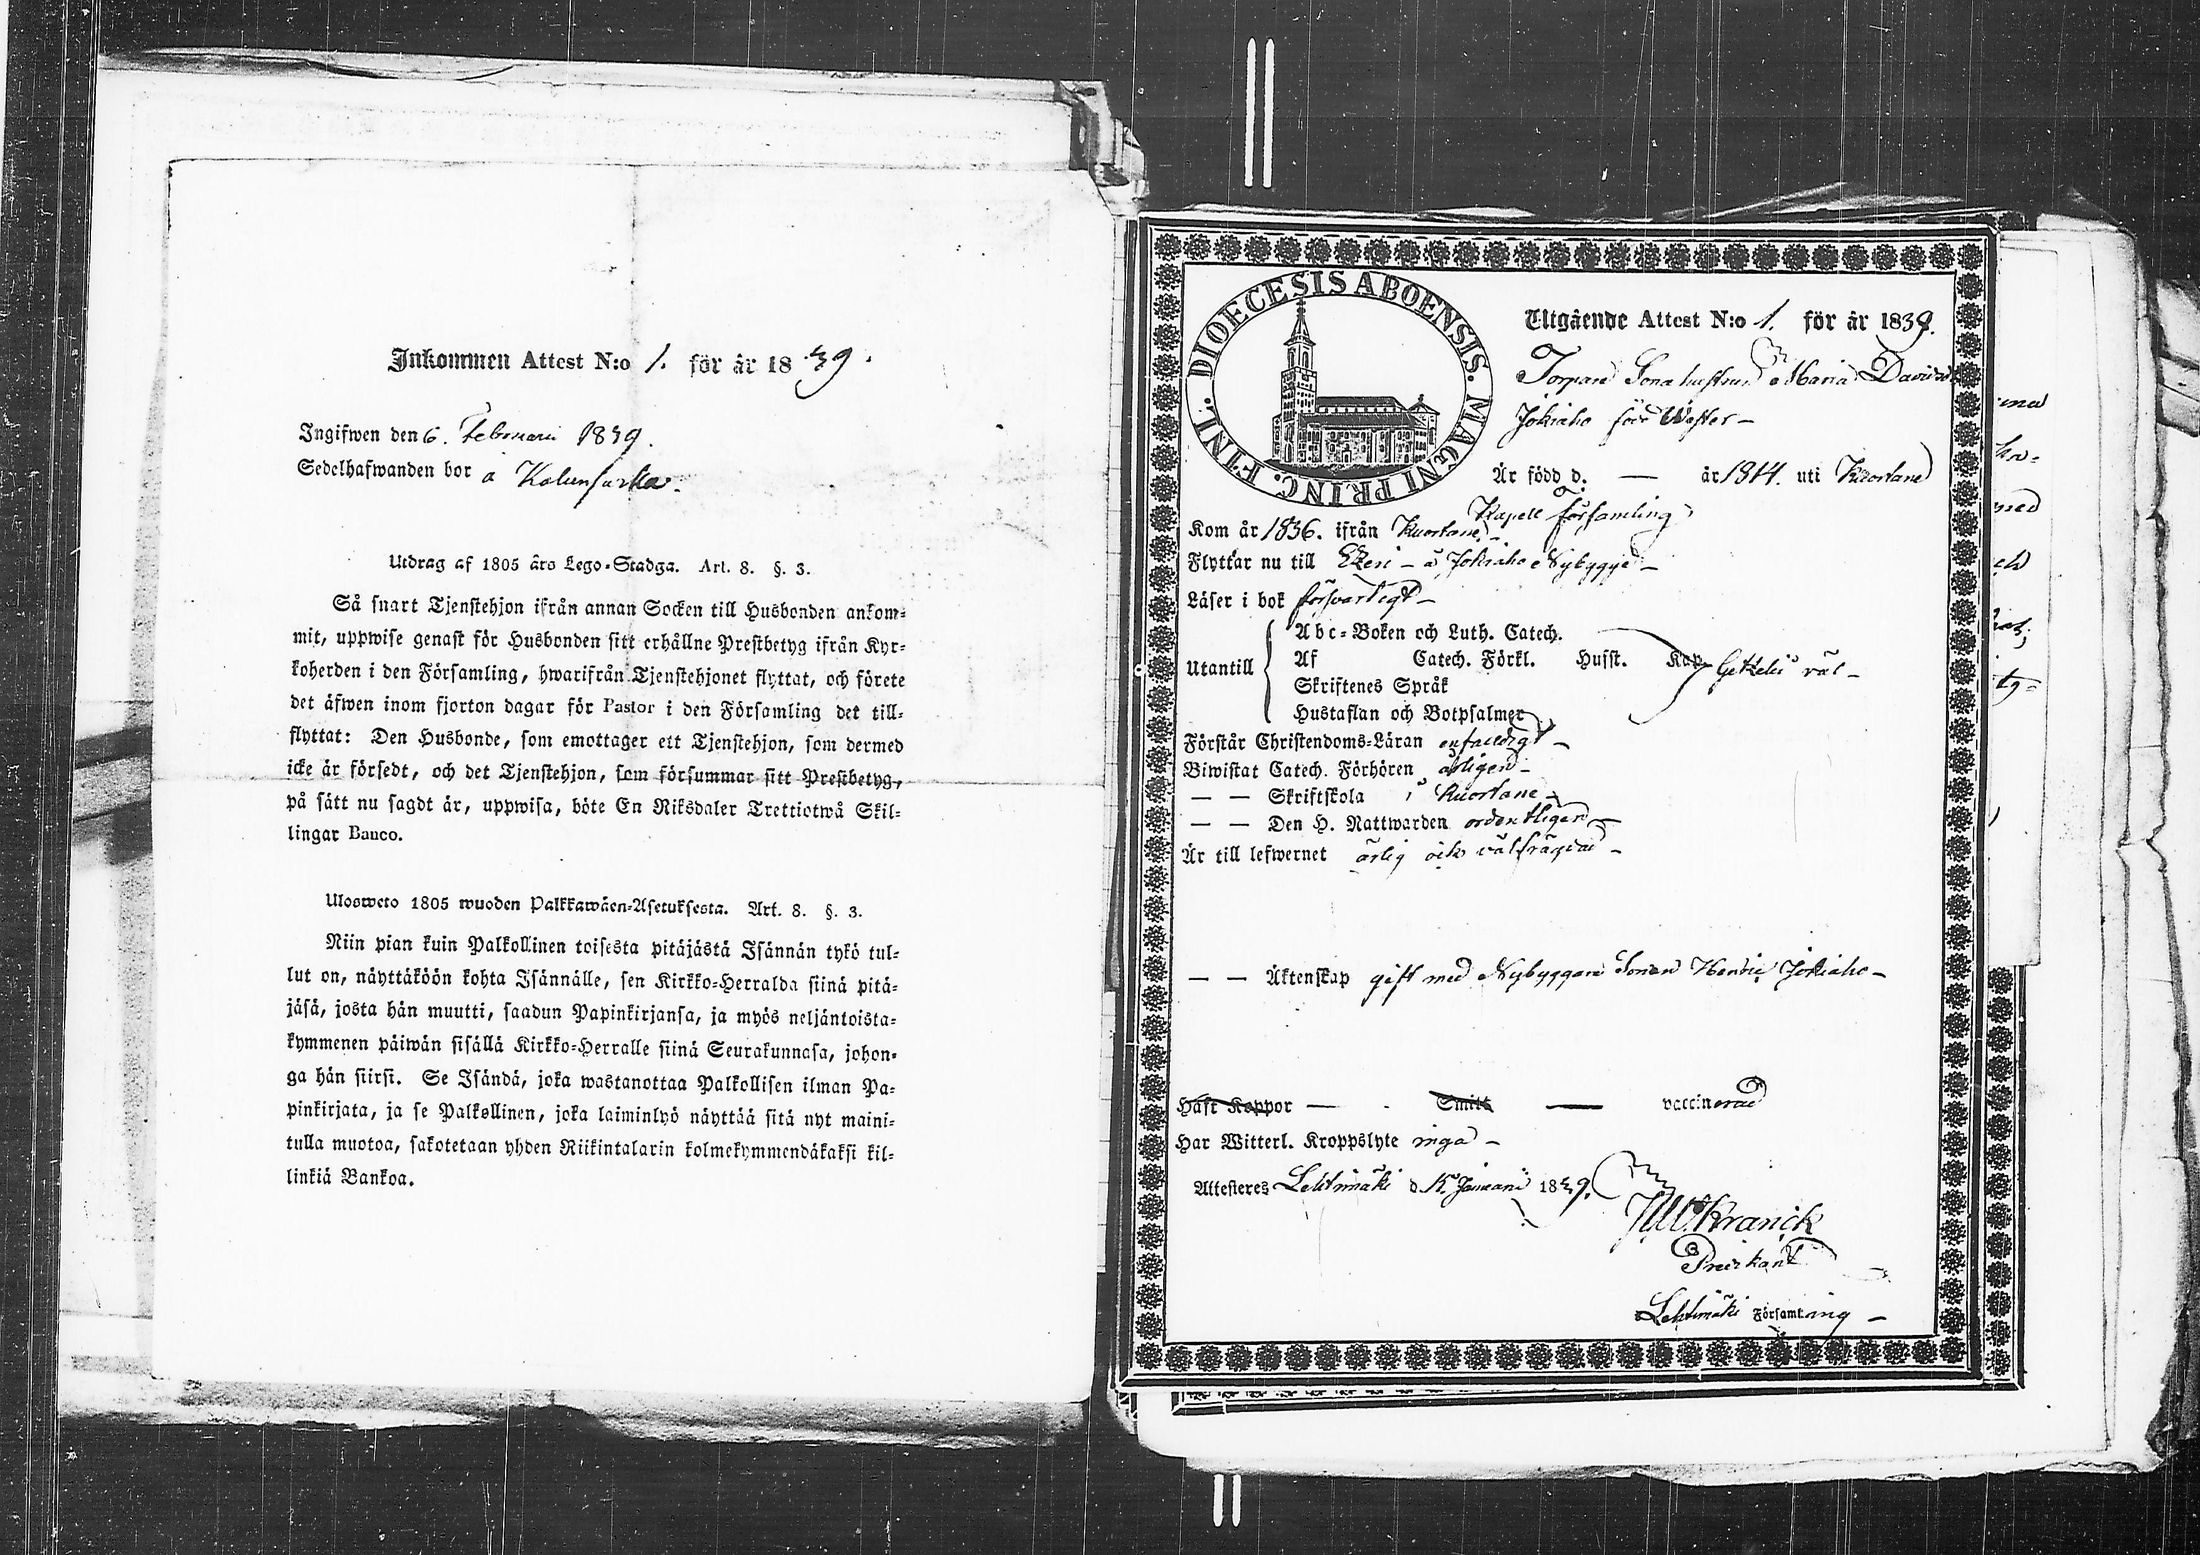 Inkommen Attest N:o 1. för år 1839.
Ingifwen den 6. Februari 1839.
Sedelhafwanden bor å
Utdrag af 1805 års Lego-Stadga. Art. 8. §. 3.
Så snart Tjenstehjon ifrån annan Socken till Husbonden ankom-
mit, uppwise genast för Husbonden sitt erhållne Prestbetyg ifrån Kyr-
koherden i den Församling, hwarifrån Tjenstehjonet flyttat, och förete
det äfwen inom fjorton dagar för Pastor i den Församling det till-
flyttat: Den Husbonde, som emottager ett Tjenstehjon, som dermed
icke är försedt, och det Tjenstehjon, som försummar sitt Prestbetyg,
på sätt nu sagdt är, uppwisa, böte En Riksdaler Trettiotwå Skil-
lingar Banco.
Ulosweto 1805 wuoden Palkkawäen-Asetuksesta. Art. 8. §. 3.
Niin pian kuin Palkollinen toisesta pitäjästä Isännän tykö tul-
lut on, näyttäköön kohta Isännälle, sen Kirkko-Herralda siinä pitä-
jäsä, josta hän muutti, saadun Papinkirjansa, ja myös neljäntoista-
kymmenen päiwän sisällä Kirkko-Herralle siinä Seurakunnasa, johon-
ga hän siirsi. Se Isändä, joka wastanottaa Palkollisen ilman Pa-
pinkirjata, ja se Palkollinen, joka laiminlyö näyttää sitä nyt maini-
tulla muotoa, sakotetaan yhden Riikintalarin kolmekymmendäkaksi kil-
linkiä Bankoa.
DIOECESIS ABOENSIS. MAGNI PRINC. FINL.
Utgående Attest N:o 1. för år 1839.
Torpare Sonahustrun Maria Davidsd
Jokiaho född Wester -
Är född d. — år 1814. uti Kuortane
Kapell församling
Kom år 1836. ifrån Kuortane -
Flyttar nu till Etzeri - å Jokiaho Nybygge -
Läser i bok försvarligt -
Utantill
Abc-Boken och Luth. Catech.
Af Catech. Förkl. Husst. Kap. Gezelii väl -
Skriftenes Språk
Hustaflan och Botpsalmer
Förstår Christendoms-Läran enfaldigt -
Biwistat Catech. Förhören årligen -
— — Skriftskola i Kuortane -
— — Den H. Nattwarden ordentligen -
Är till lefwernet ärlig och välfrägdad -
— — Äktenskap gift med Nybyggare Sonen Henric Jokiaho -
Haft Koppor — Smitt — vaccinerad
Har Witterl. Kroppslyte inga -
Attesteres Lehtimäki d. 15. Januari 1839.
Kranck
Predikant
Lehtimäki Församling -